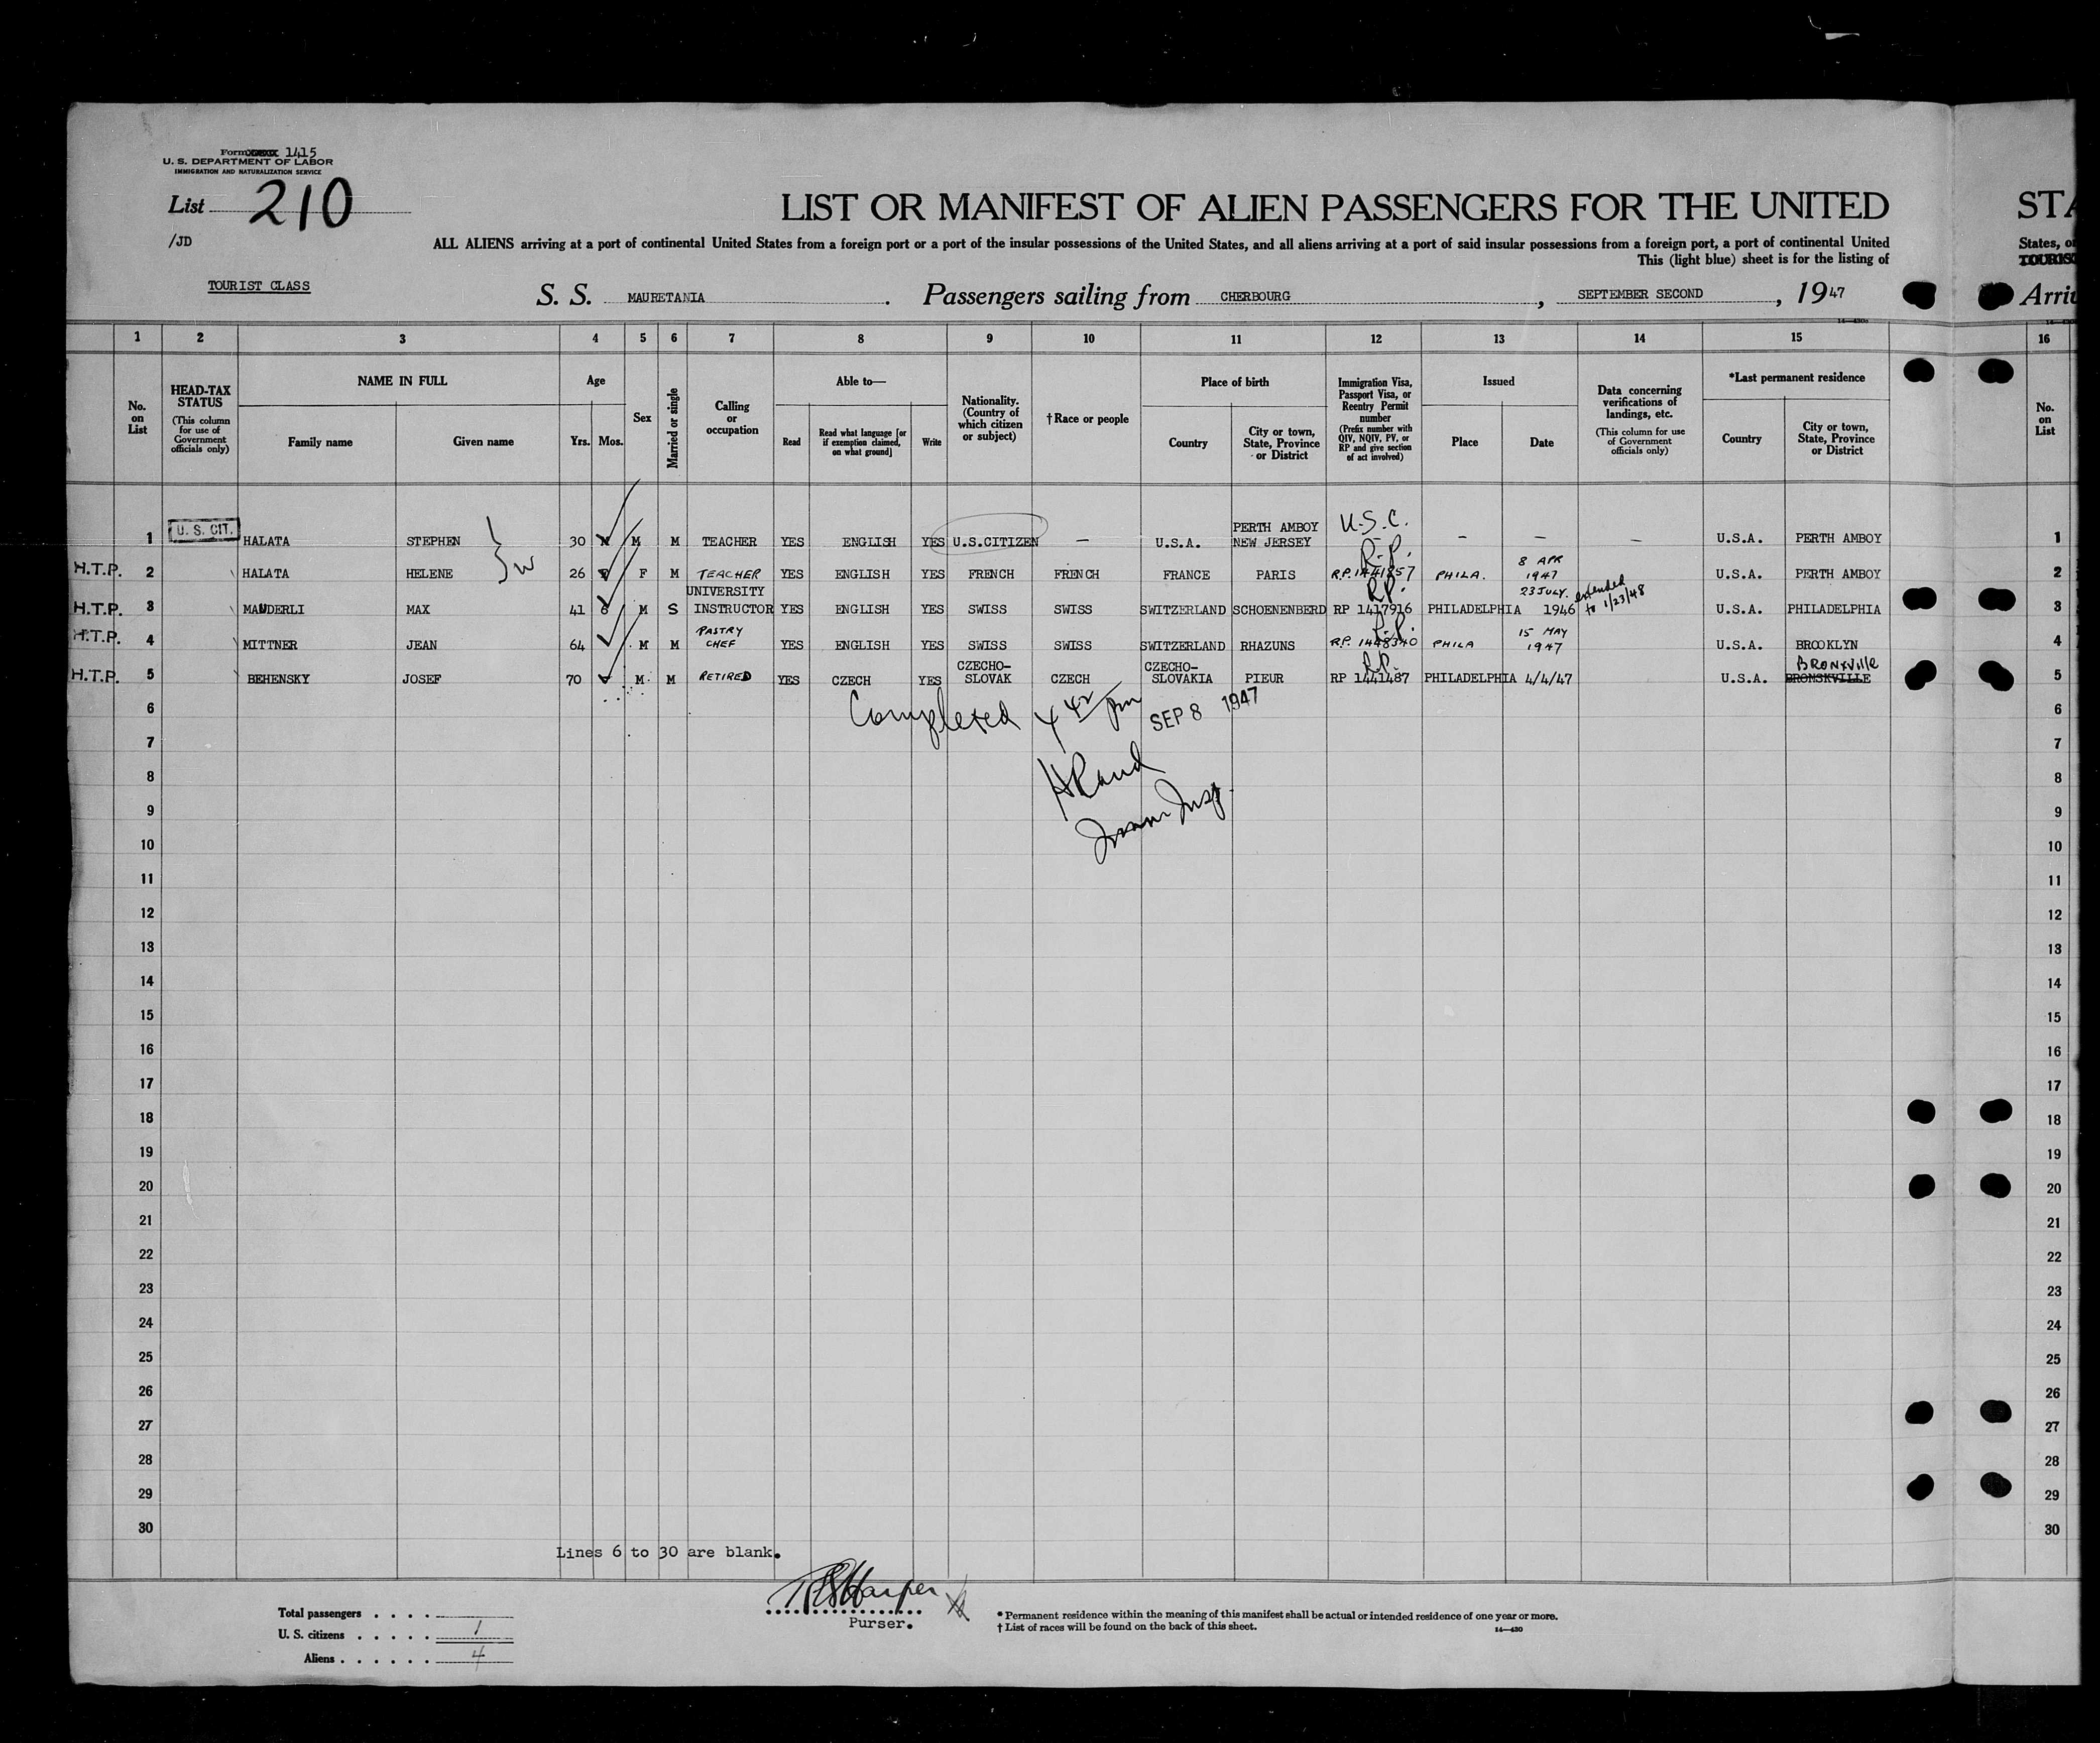 Form 1415
U. S. DEPARTMENT OF LABOR
IMMIGRATION AND NATURALIZATION SERVICE
List 210
/JD
LIST OR MANIFEST OF ALIEN PASSENGERS FOR THE UNITED
STA
ALL ALIENS arriving at a port of continental United States from a foreign port or a port of the insular possessions of the United States, and all aliens arriving at a port of said insular possessions from a foreign port, a port of continental United
States, o
This (light blue) sheet is for the listing of
TOURIST CLASS
S. S. MAURETANIA . Passengers sailing from CHERBOURG , SEPTEMBER SECOND , 1947
Arri
1 2 3 4 5 6 7 8 9 10 11 12 13 14 15 16
No. on List
HEAD-TAX STATUS (This column for use of Government officials only)
NAME IN FULL
Family name Given name
Age
Yrs. Mos.
Sex
Married or single
Calling or occupation
Able to—
Read
Read what language [or if exemption claimed, on what ground]
Write
Nationality. (Country of which citizen or subject)
†Race or people
Place of birth
Country
City or town, State, Province or District
Immigration Visa, Passport Visa, or Reentry Permit number (Prefix number with QIV, NQIV, PV, or RP and give section of act involved)
Issued
Place Date
Data concerning verifications of landings, etc. (This column for use of Government officials only)
*Last permanent residence
Country
City or town, State, Province or District
No. on List
1 U. S. CIT. HALATA STEPHEN 30 M M TEACHER YES ENGLISH YES U.S.CITIZEN — U.S.A. PERTH AMBOY NEW JERSEY U.S.C. – – – – U.S.A. PERTH AMBOY 1
H.T.P. 2 HALATA HELENE } W 26 F M TEACHER YES ENGLISH YES FRENCH FRENCH FRANCE PARIS R.P. R.P. 1441857 PHILA. 8 APR 1947 U.S.A. PERTH AMBOY 2
H.T.P. 3 MAUDERLI MAX 41 M S UNIVERSITY INSTRUCTOR YES ENGLISH YES SWISS SWISS SWITZERLAND SCHOENENBERD R.P. RP 1417916 PHILADELPHIA 23 JULY. 1946 extended to 1/23/48 U.S.A. PHILADELPHIA 3
H.T.P. 4 MITTNER JEAN 64 M M PASTRY CHEF YES ENGLISH YES SWISS SWISS SWITZERLAND RHAZUNS R.P. R.P. 1448340 PHILA 15 MAY 1947 U.S.A. BROOKLYN 4
H.T.P. 5 BEHENSKY JOSEF 70 M M RETIRED YES CZECH YES CZECHO-SLOVAK CZECH CZECHO-SLOVAKIA PIEUR R.P. RP 1441487 PHILADELPHIA 4/4/47 U.S.A. BRONXVIlle BRONSKVILLE 5
6 Completed 4 42 pm SEP 8 1947 6
7 7
8 HRand 8
9 Immn Insp. 9
10 10
11 11
12 12
13 13
14 14
15 15
16 16
17 17
18 18
19 19
20 20
21 21
22 22
23 23
24 24
25 25
26 26
27 27
28 28
29 29
30 30
Lines 6 to 30 are blank.
Purser.
Total passengers . . . .
U. S. citizens . . . . . 1
Aliens . . . . . . 4
* Permanent residence within the meaning of this manifest shall be actual or intended residence of one year or more.
† List of races will be found on the back of this sheet.
14—430